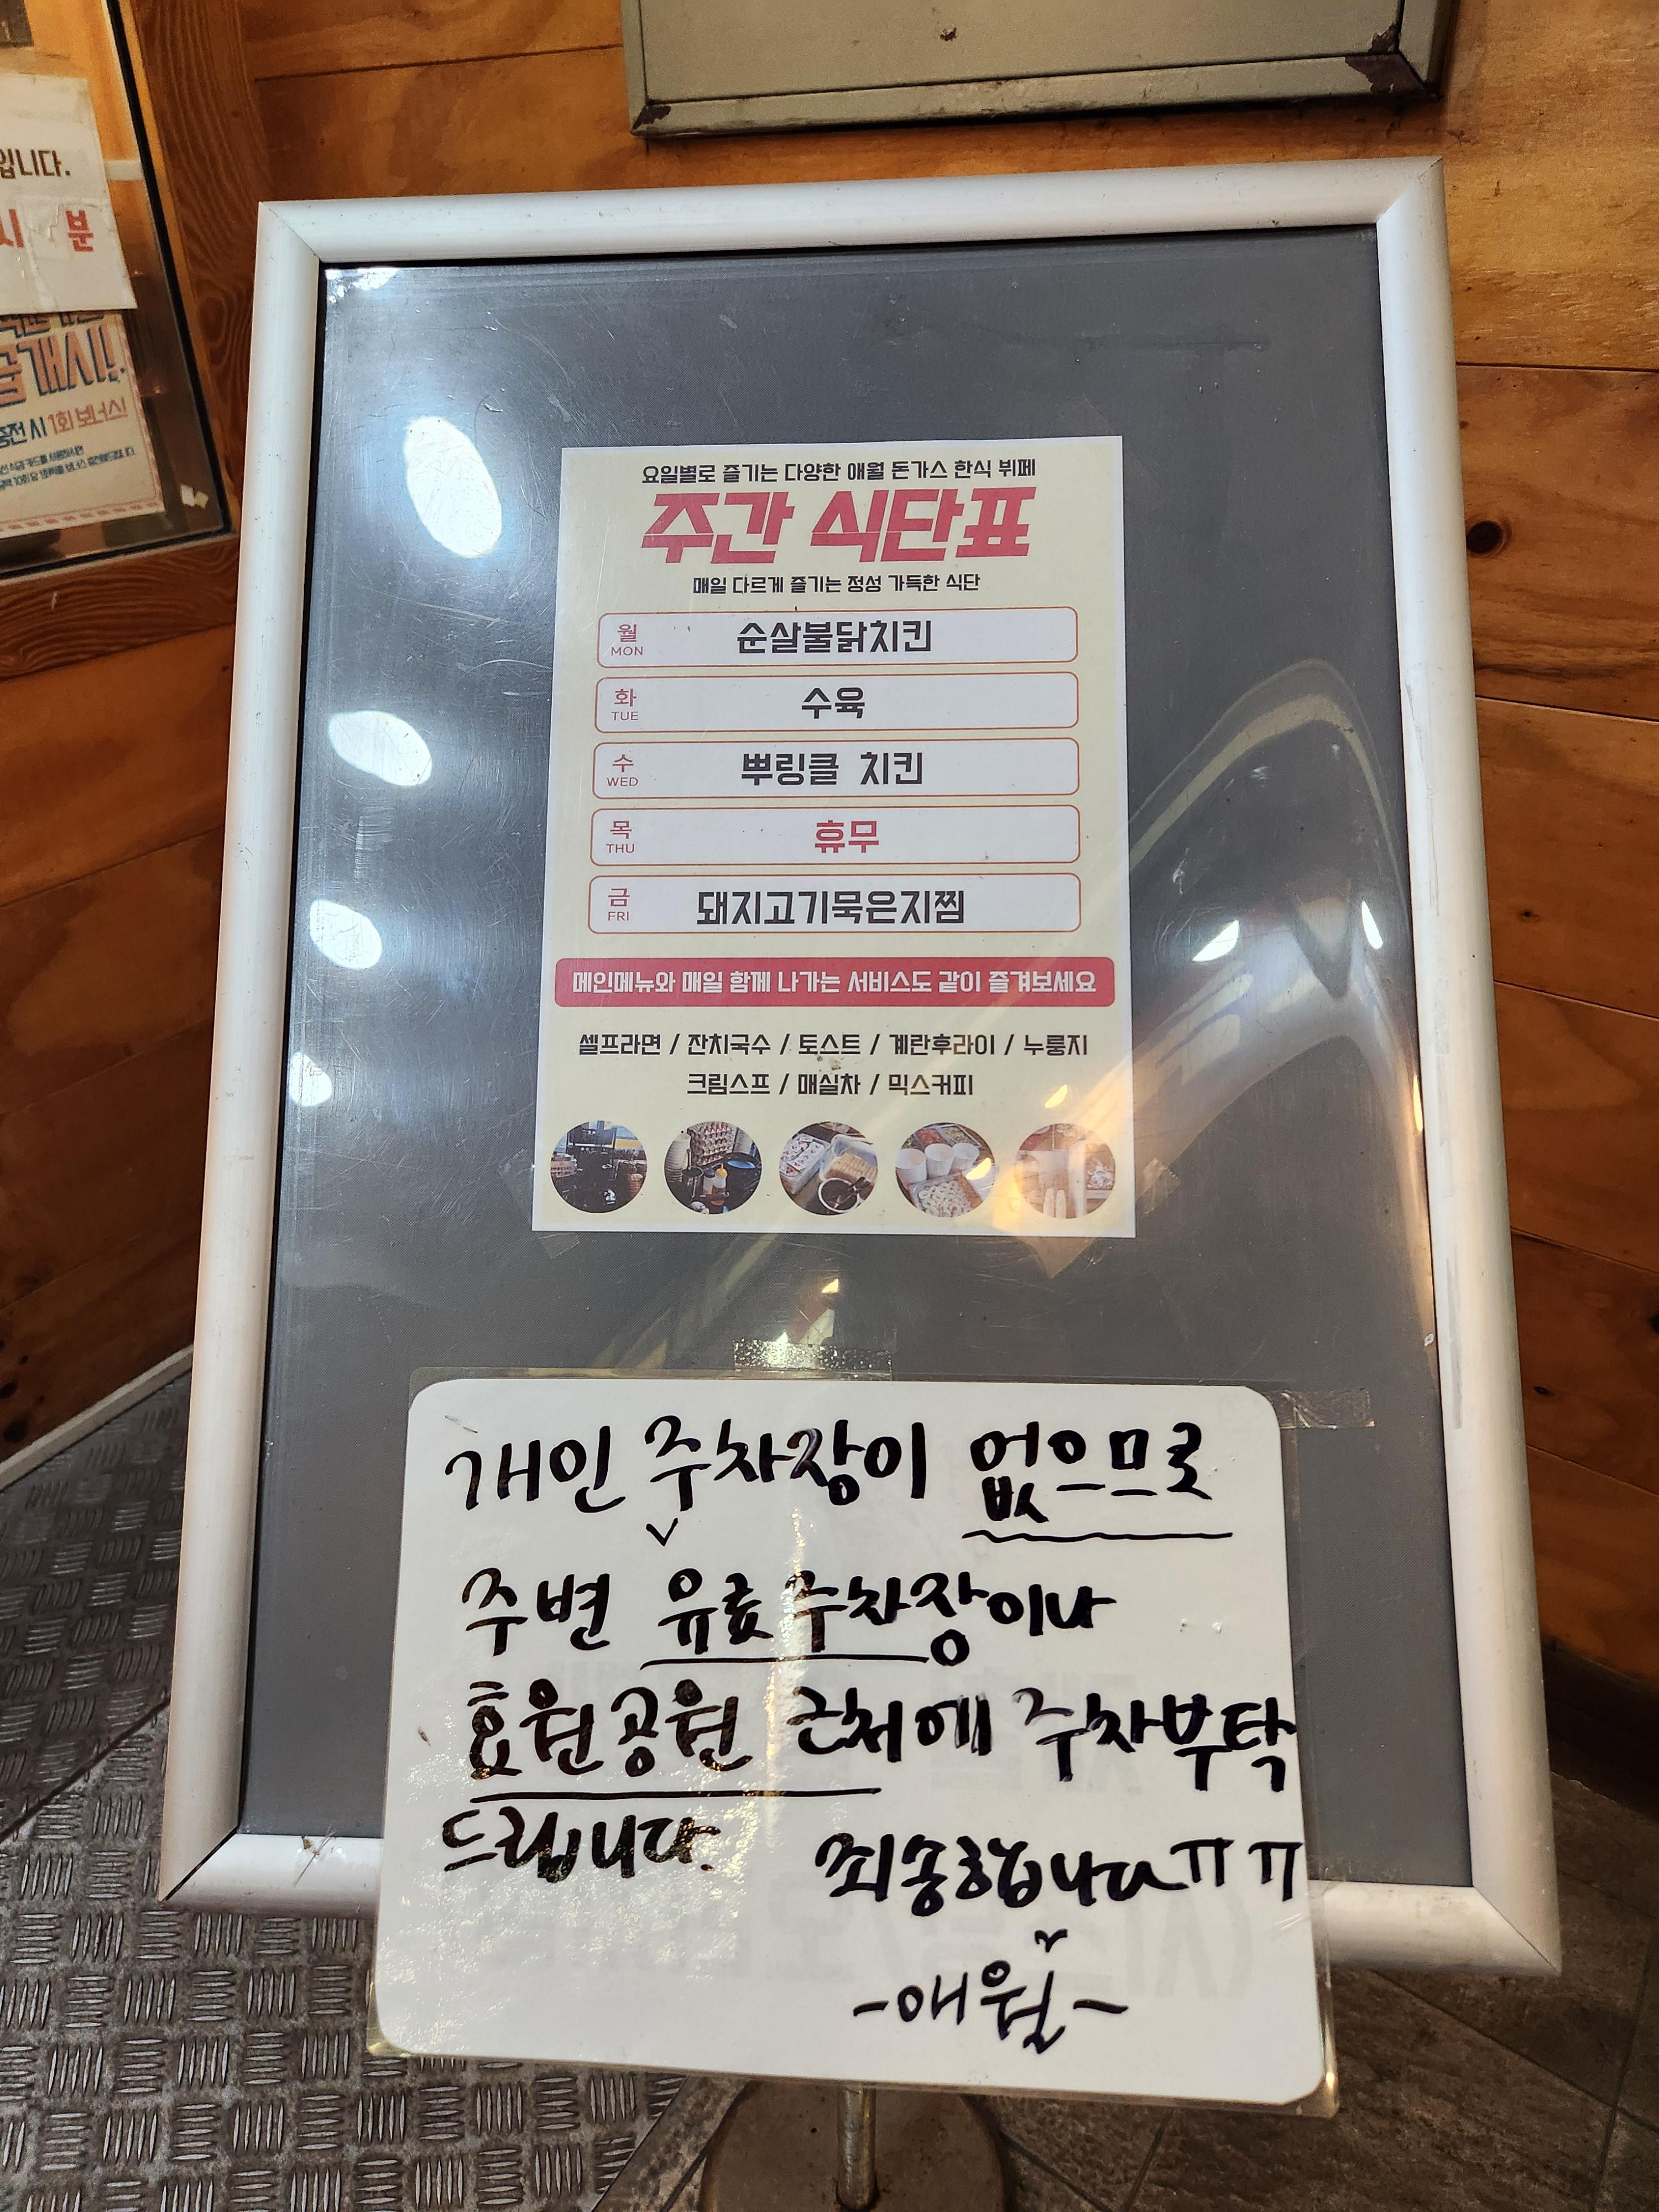 입니다.
시 분
개시!!
충전 시 1회 보너스!
요일별로 즐기는 다양한 애월 돈가스 한식 뷔페
주간 식단표
매일 다르게 즐기는 정성 가득한 식단
월 MON 순살불닭치킨
화 TUE 수육
수 WED 뿌링클 치킨
목 THU 휴무
금 FRI 돼지고기묵은지찜
메인메뉴와 매일 함께 나가는 서비스도 같이 즐겨보세요
셀프라면 / 잔치국수 / 토스트 / 계란후라이 / 누룽지
크림스프 / 매실차 / 믹스커피
개인 주차장이 없으므로
주변 유료주차장이나
효원공원 근처에 주차부탁
드립니다.
죄송합니다ㅠㅠ
-애월-